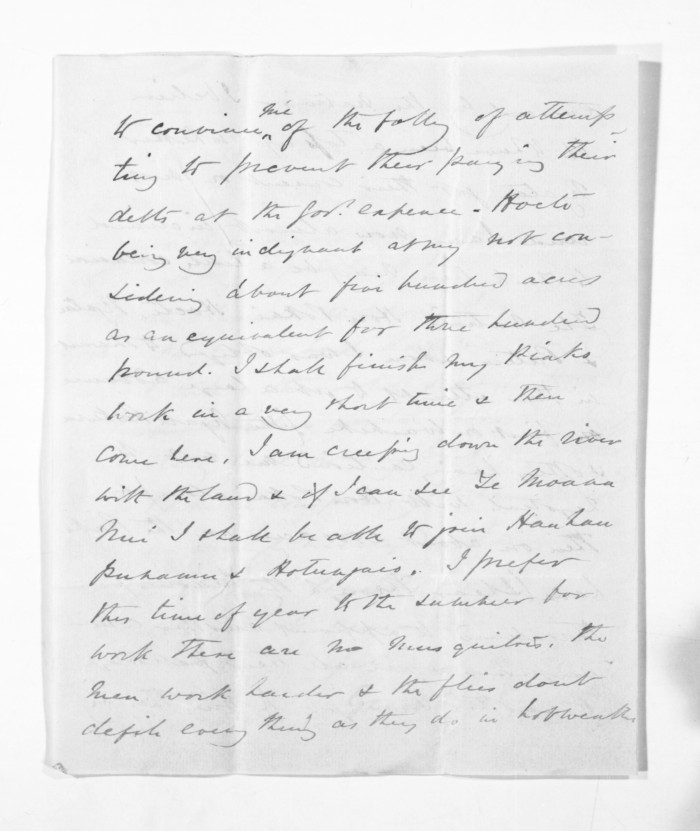 to convince me of the folly of attemp
ting to prevent their paying their
debts at the Govt. expence - Hoete
being very indignant at my not con-
sidering about five hundred acres
as an equivalent for three hundred
pound. I shall finish my Piako
work in a very short time & then
come here. I am creeping down the river
with the land & if I can see Te Moana
Nui I shall be able to join Hauhau
& Hotungaio. I prefer
this time of year to the summer for
work there are no musquitoes. The
men work harder & the flies dont
defile every thing as they do in hot weather